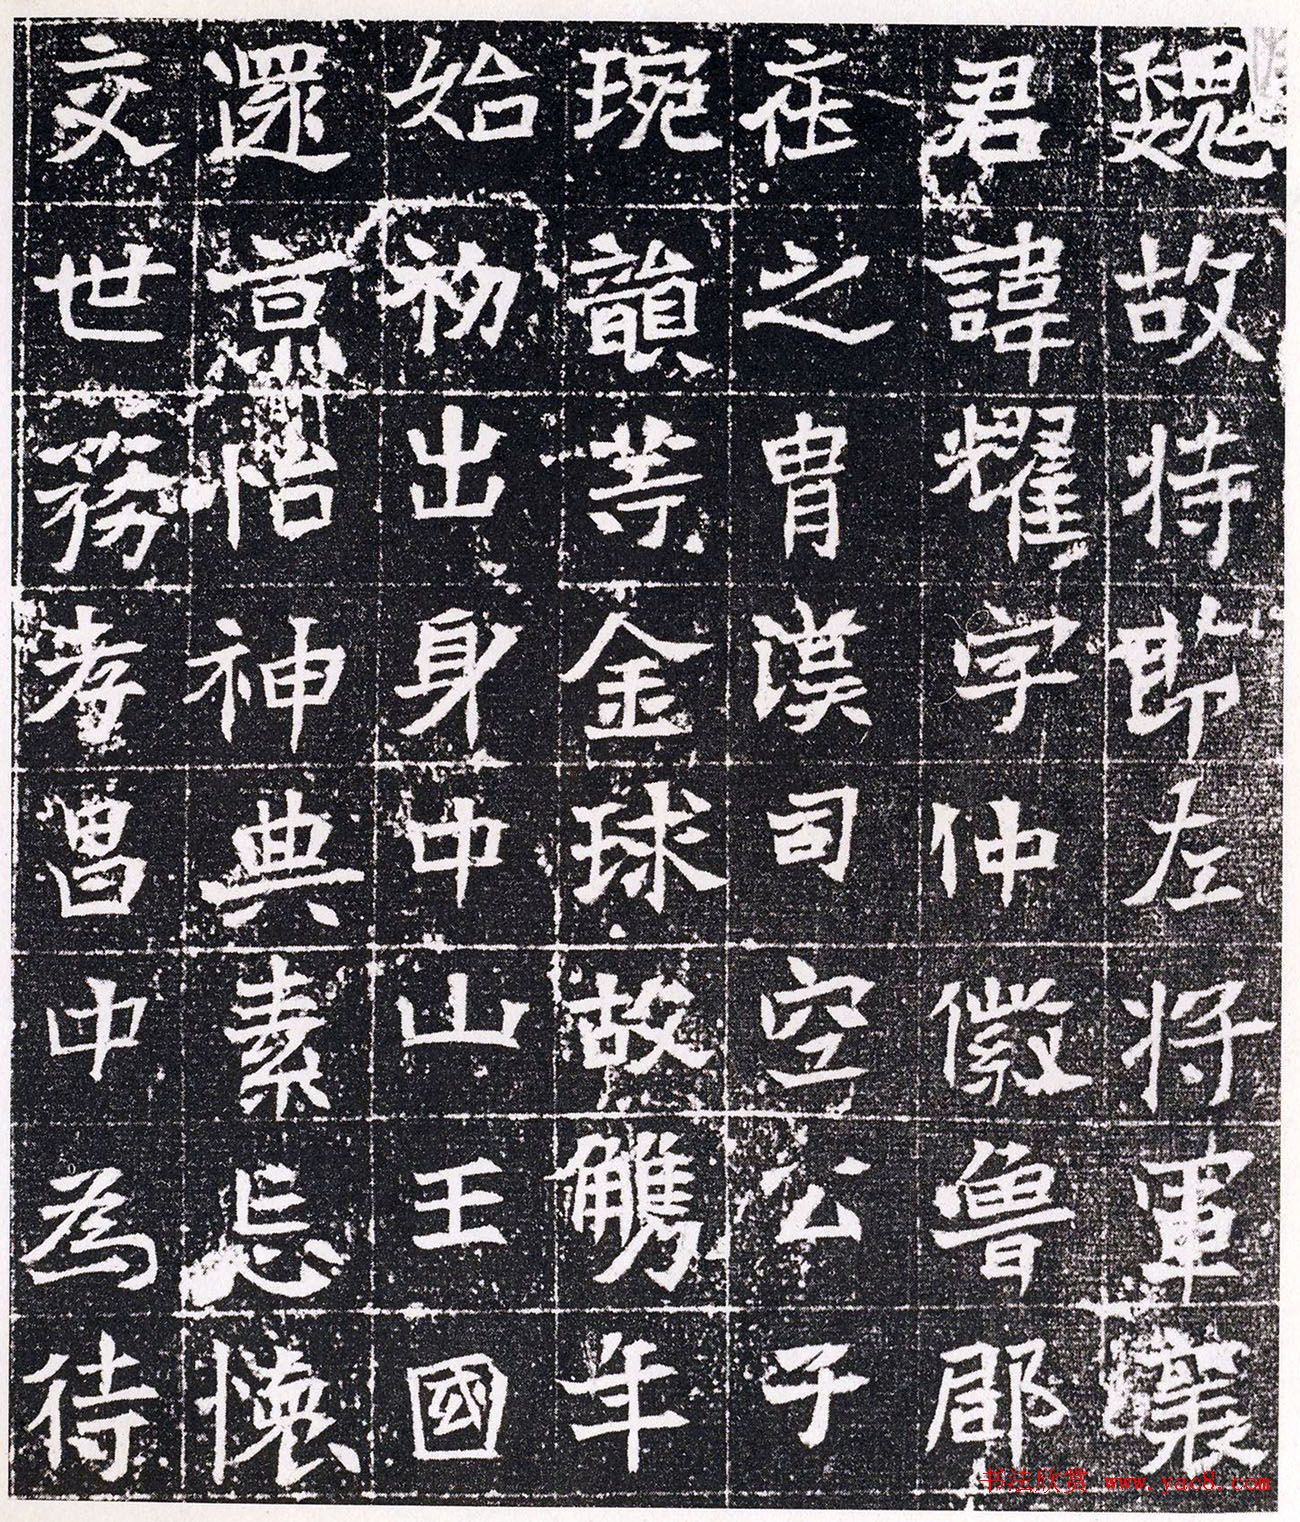 魏故持節左將軍襄
君諱耀字仲徽魯郡
在之胄漢司空公子
琬韻等金球故觿年
始初出身中山王國
還京怡神典素忘懷
交世務孝昌中為待
书法欣赏 www.yac8.com